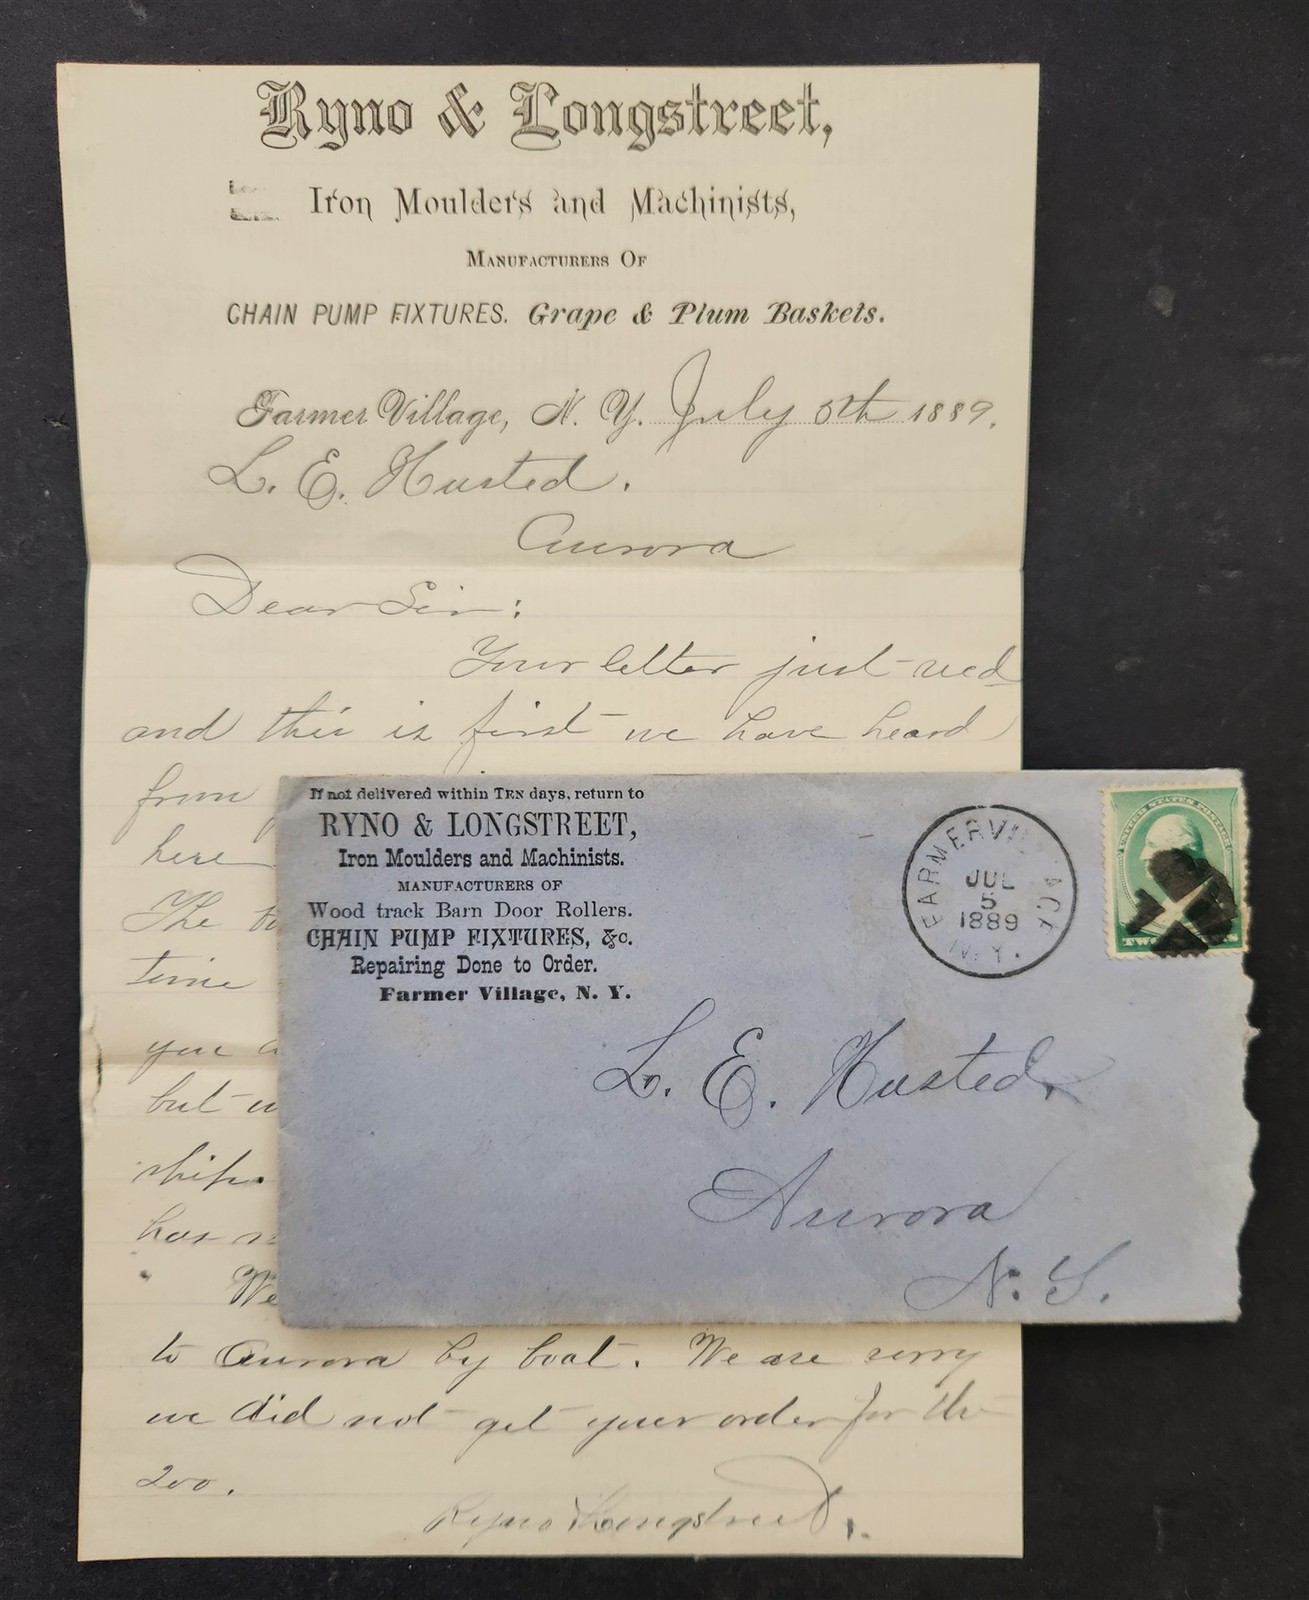 Ryno & Longstreet,
Iron Moulders and Machinists,
Manufacturers Of
CHAIN PUMP FIXTURES. Grape & Plum Baskets.
Farmer Village, N. Y. July 5th 1889.
L. E. Husted.
Aurora
Dear Sir:
Your letter just recd
and this is first we have heard
from
here
The
time
you
but
ship.
has
We
to Aurora by boat. We are sorry
we did not get your order for the
200.
Ryno & Longstreet.
If not delivered within TEN days, return to
RYNO & LONGSTREET,
Iron Moulders and Machinists.
MANUFACTURERS OF
Wood track Barn Door Rollers.
CHAIN PUMP FIXTURES, &c.
Repairing Done to Order.
Farmer Village, N. Y.
JUL
5
1889
N.Y.
UNITED STATES POSTAGE
TWO
L. E. Husted,
Aurora
N. Y.